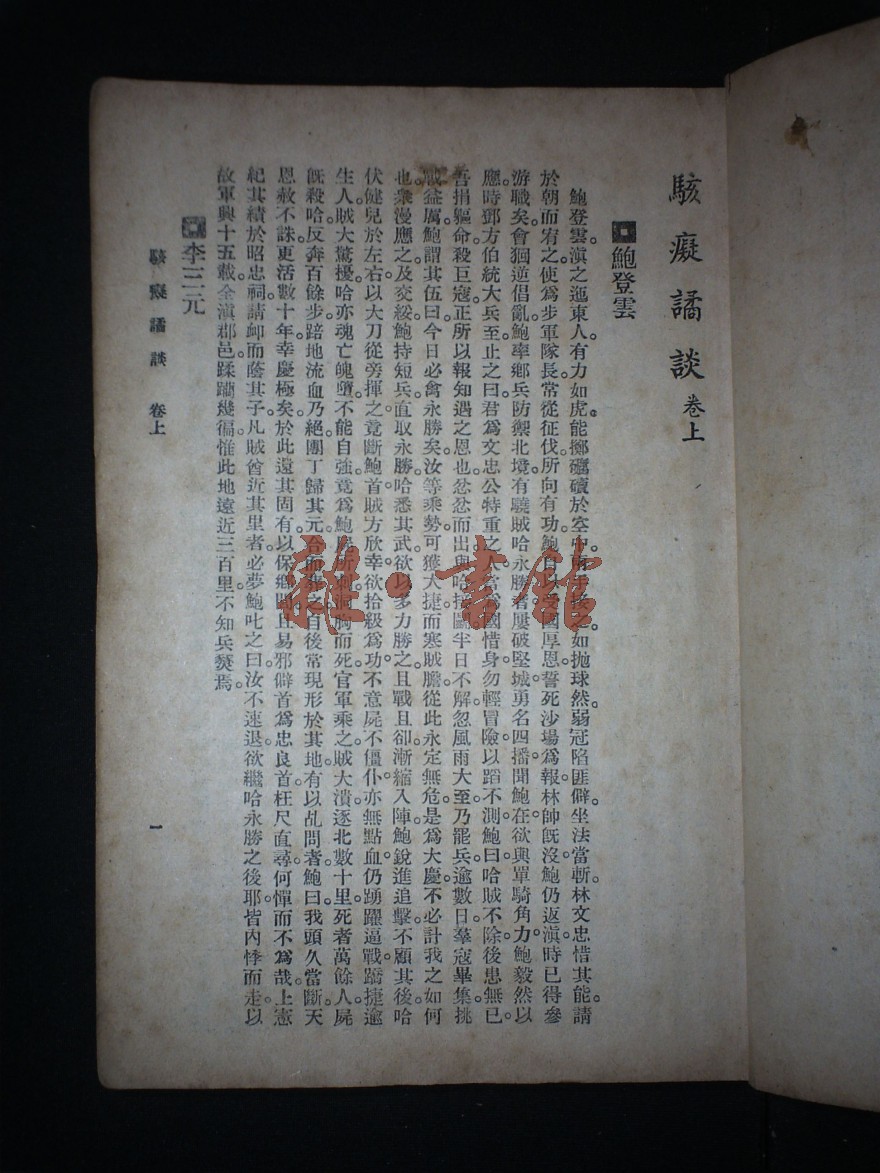 駭癡譎談 卷上
鮑登雲
鮑登雲。滇之迤東人。有力如虎。能擲礌磧於空中。兩手接之。如拋球然。弱冠陷匪僻。坐法當斬。林文忠惜其能。請
於朝而宥之。使爲步軍隊長。常從征伐。所向有功。鮑自以受國厚恩。誓死沙場爲報。林帥旣沒。鮑仍返滇。時已得參
游職矣。會猓逆倡亂。鮑率鄉兵防禦北境。有驍賊哈永勝者。屢破堅城。勇名四播。聞鮑在。欲與單騎角力。鮑毅然以
應。時鄧方伯統大兵至。止之曰。君爲文忠公特重之人。當爲國惜身。勿輕冒險。以蹈不測。鮑曰。哈賊不除。後患無已。
吾捐軀命殺巨寇。正所以報知遇之恩也。忿忿而出。與哈 鬭半日不解。忽風雨大至。乃罷兵。逾數日。羣寇畢集。挑
戰益厲。鮑謂其伍曰。今日必禽永勝矣。汝等乘勢可獲大捷。而寒賊膽。從此永定無危。是爲大慶。不必計我之如何
也。衆漫應之。及交綏。鮑持短兵直取永勝。哈悉其武。欲以多力勝之。且戰且卻。漸縮入陣。鮑銳進追擊。不顧其後。哈
伏健兒於左右。以大刀從旁揮之。竟斷鮑首。賊方欣幸。欲拾級爲功。不意屍不僵仆。亦無點血。仍踴躍逼戰。蹻捷逾
生人。賊大驚擾。哈亦魂亡魄墮。不能自強。竟爲鮑屍所刺。洞胸而死。官軍乘之。賊大潰。逐北數十里。死者萬餘人。屍
旣殺哈。反奔百餘步。踣地流血乃絕。團丁歸其元。合而葬之。自後常現形於其地。有以乩問者。鮑曰。我頭久當斷。天
恩赦不誅。更活數十年。幸慶極矣。於此還其固有。以保鄉閭。且易邪僻首爲忠良首。枉尺直尋。何憚而不爲哉。上憲
紀其績於昭忠祠。請卹而蔭其子。凡賊酋近其里者。必夢鮑叱之曰。汝不速退。欲繼哈永勝之後耶。皆內悸而走。以
故軍興十五載。全滇郡邑蹂躪幾徧。惟此地遠近三百里不知兵燹焉。
李三元
駭癡譎談 卷上 一
雜·書館